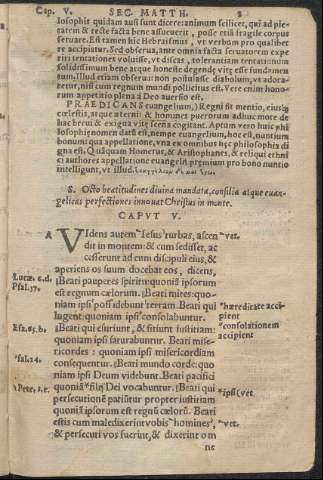 Cap. V. SEC. MATTH.
losophis quidam ausi sunt dicere: animum scilicet, qui ad pie-
tatem & recte facta bene assueuerit, posse etiã fragile corpus
seruare. Est tamen hic Hebraismus, vt verbum pro qualibet
re accipiatur. Sed obserua, ante omnia facta seruatorem expe
riri tentationes voluisse, vt discas, tolerantiam tentationum
solidissimum bene atque honeste degendę vitę esse fundamen
tum. Illud etiam obserua: non postulasse diabolum, vt adora-
retur, nisi cum regnum mundi pollicitus est. Vere enim hono-
rum appetitio plena à Deo auersio est.
PRAEDICANS euangelium,) Regni sit mentio, eiusq́;
cœlestis, atque æterni: & homines puerorum adhuc more de
hac breui & exigua vite scena cogitant. Aptum vero huic phi
losophię nomen datũ est, nempe euangelium, hoc est, nuntium
bonum: qua appellatione, vna ex omnibus hęc philosophia di
gna est. Quãquam Homerus, & Aristophanes, & reliqui ethni
ci authores appellatione euangelij pręmium pro bono nuntio
intelligunt, vt illud.
S. Octo beatitudines diuina mandata, consilia atque euan-
gelicas perfectiones innouat Christus in monte.
CAPVT V.
A VIdens autem Iesus turbas, ascen vet.
dit in montem: & cum sedisset, ac
cesserunt ad eum discipuli eius, &
aperiens os suum docebat eos, dicens,
Lucæ. 6. d. ¶Beati pauperes spiritu: quoniã ipsorum
Psal. 37. est regnum cælorum. ¶Beati mites: quo-
niam ipsi possidebunt terram. Beati qui hæreditate acci-
lugent: quoniam ipsi consolabuntur. pient
Esa. 65. b. ¶Beati qui esuriunt, & sitiunt iustitiam: consolationem
quoniam ipsi saturabuntur. Beati mise- accipient
Psal. 24. ricordes: quoniam ipsi misericordiam
consequentur. ¶Beati mundo corde: quo
niam ipsi Deum videbunt. Beati pacifici
quoniã filij Dei vocabuntur. ¶Beati qui ipsi (vet.
persecutionē patiũtur propter iustitiam
quoniã ipsorum est regnũ cælorũ. Beati
estis cum maledixerint vobis homines, vet.
& persecuti vos fuerint, & dixerint om
ne